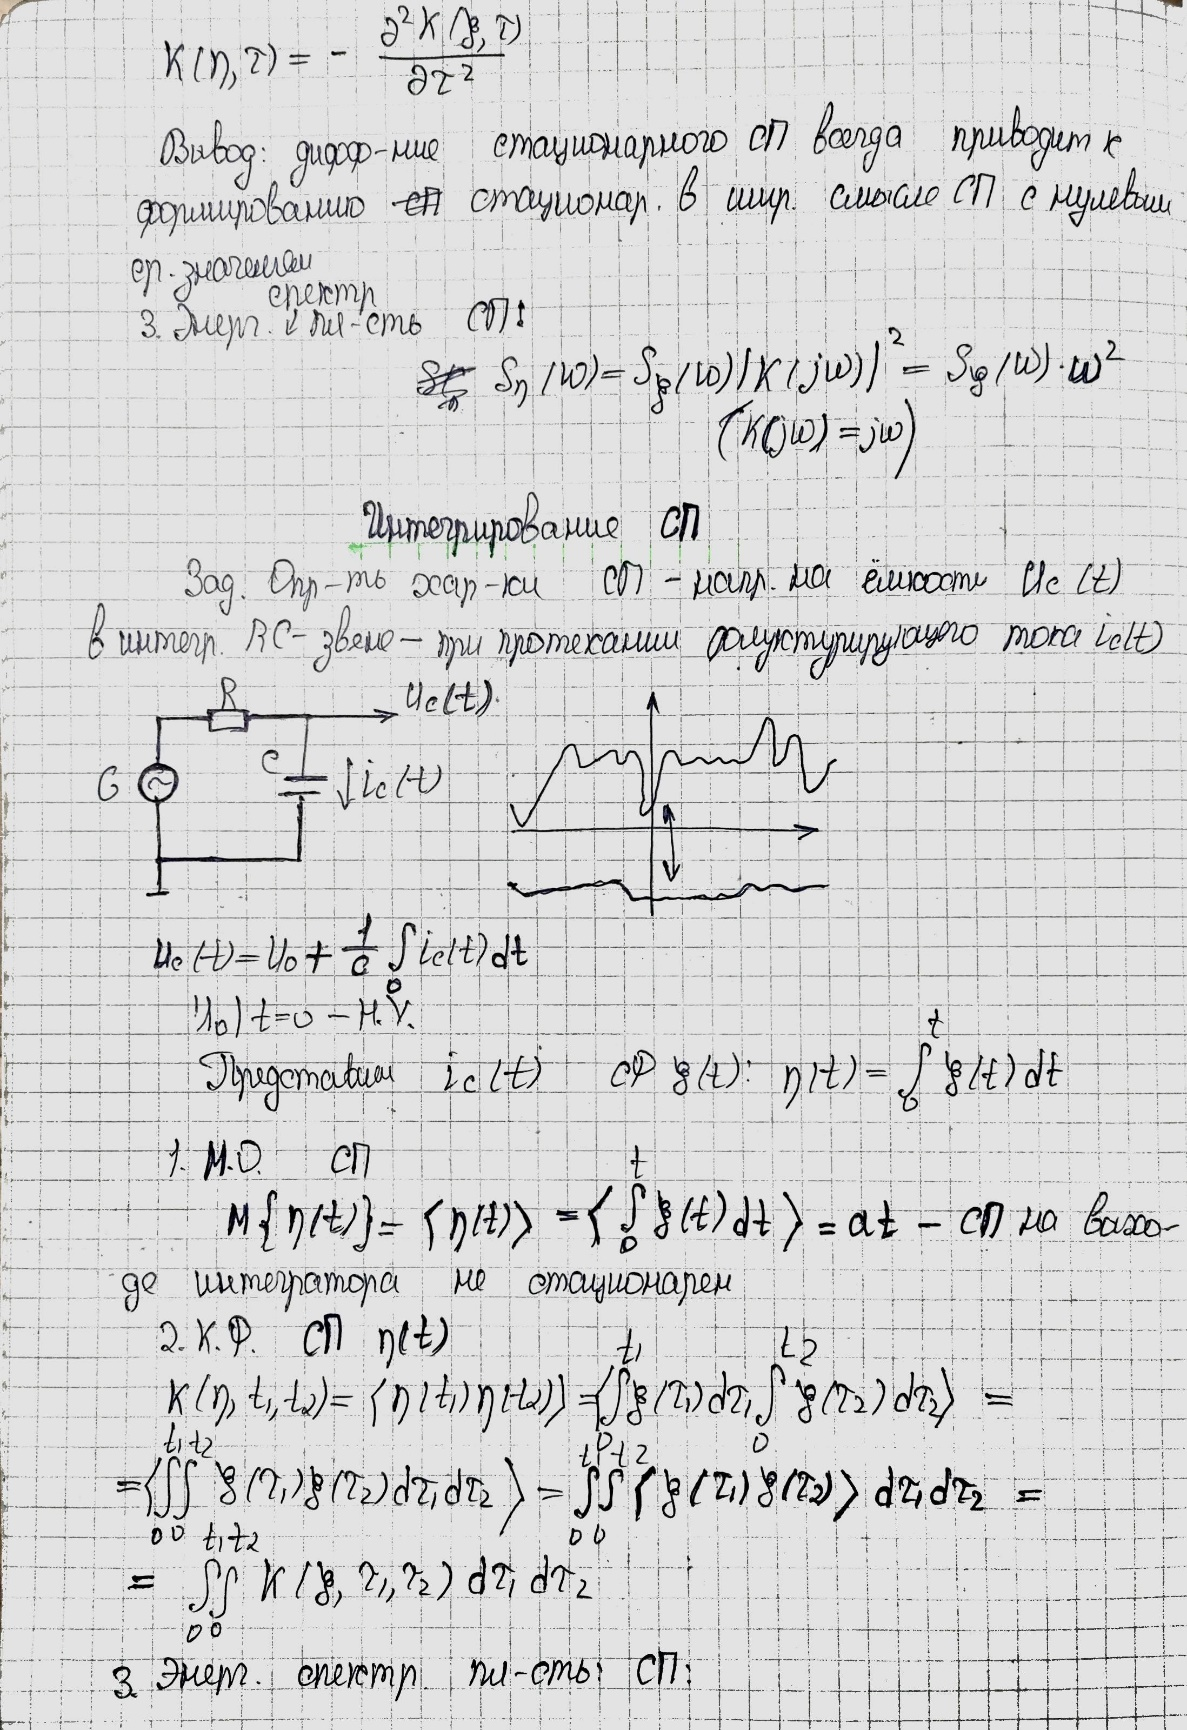 K(η,τ) = - ∂²K(ξ,τ) / ∂τ²
Вывод: дифф-ние стационарного СП всегда приводит к
формированию стационар. в шир. смысле СП с нулевым
ср. значением
спектр
3. Энерг. пл-сть СП:
Sη(ω) = Sξ(ω)|K(jω)|² = Sξ(ω)·ω²
(K(jω) = jω)
Интегрирование СП
Зад. Опр-ть хар-ки СП - напр. на ёмкости Uc(t)
в интегр. RC-звене - при протекании флуктуирующего тока ic(t)
R
Uc(t)
G
C
ic(t)
Uc(t) = U0 + 1/C ∫₀ ic(t) dt
U0) t=0 - Н.У.
Представим ic(t) СФ ξ(t): η(t) = ∫₀ᵗ ξ(t) dt
1. М.О. СП
M{η(t)} = ⟨η(t)⟩ = ⟨∫₀ᵗ ξ(t) dt⟩ = at - СП на выхо-
де интегратора не стационарен
2. К.Ф. СП η(t)
K(η, t1, t2) = ⟨η(t1) η(t2)⟩ = ⟨∫₀^t1 ξ(τ1) dτ1 ∫₀^t2 ξ(τ2) dτ2⟩ =
= ⟨∫₀^t1 ∫₀^t2 ξ(τ1) ξ(τ2) dτ1 dτ2⟩ = ∫₀^t1 ∫₀^t2 ⟨ξ(τ1) ξ(τ2)⟩ dτ1 dτ2 =
= ∫₀^t1 ∫₀^t2 K(ξ, τ1, τ2) dτ1 dτ2
3. Энерг. спектр. пл-сть: СП: